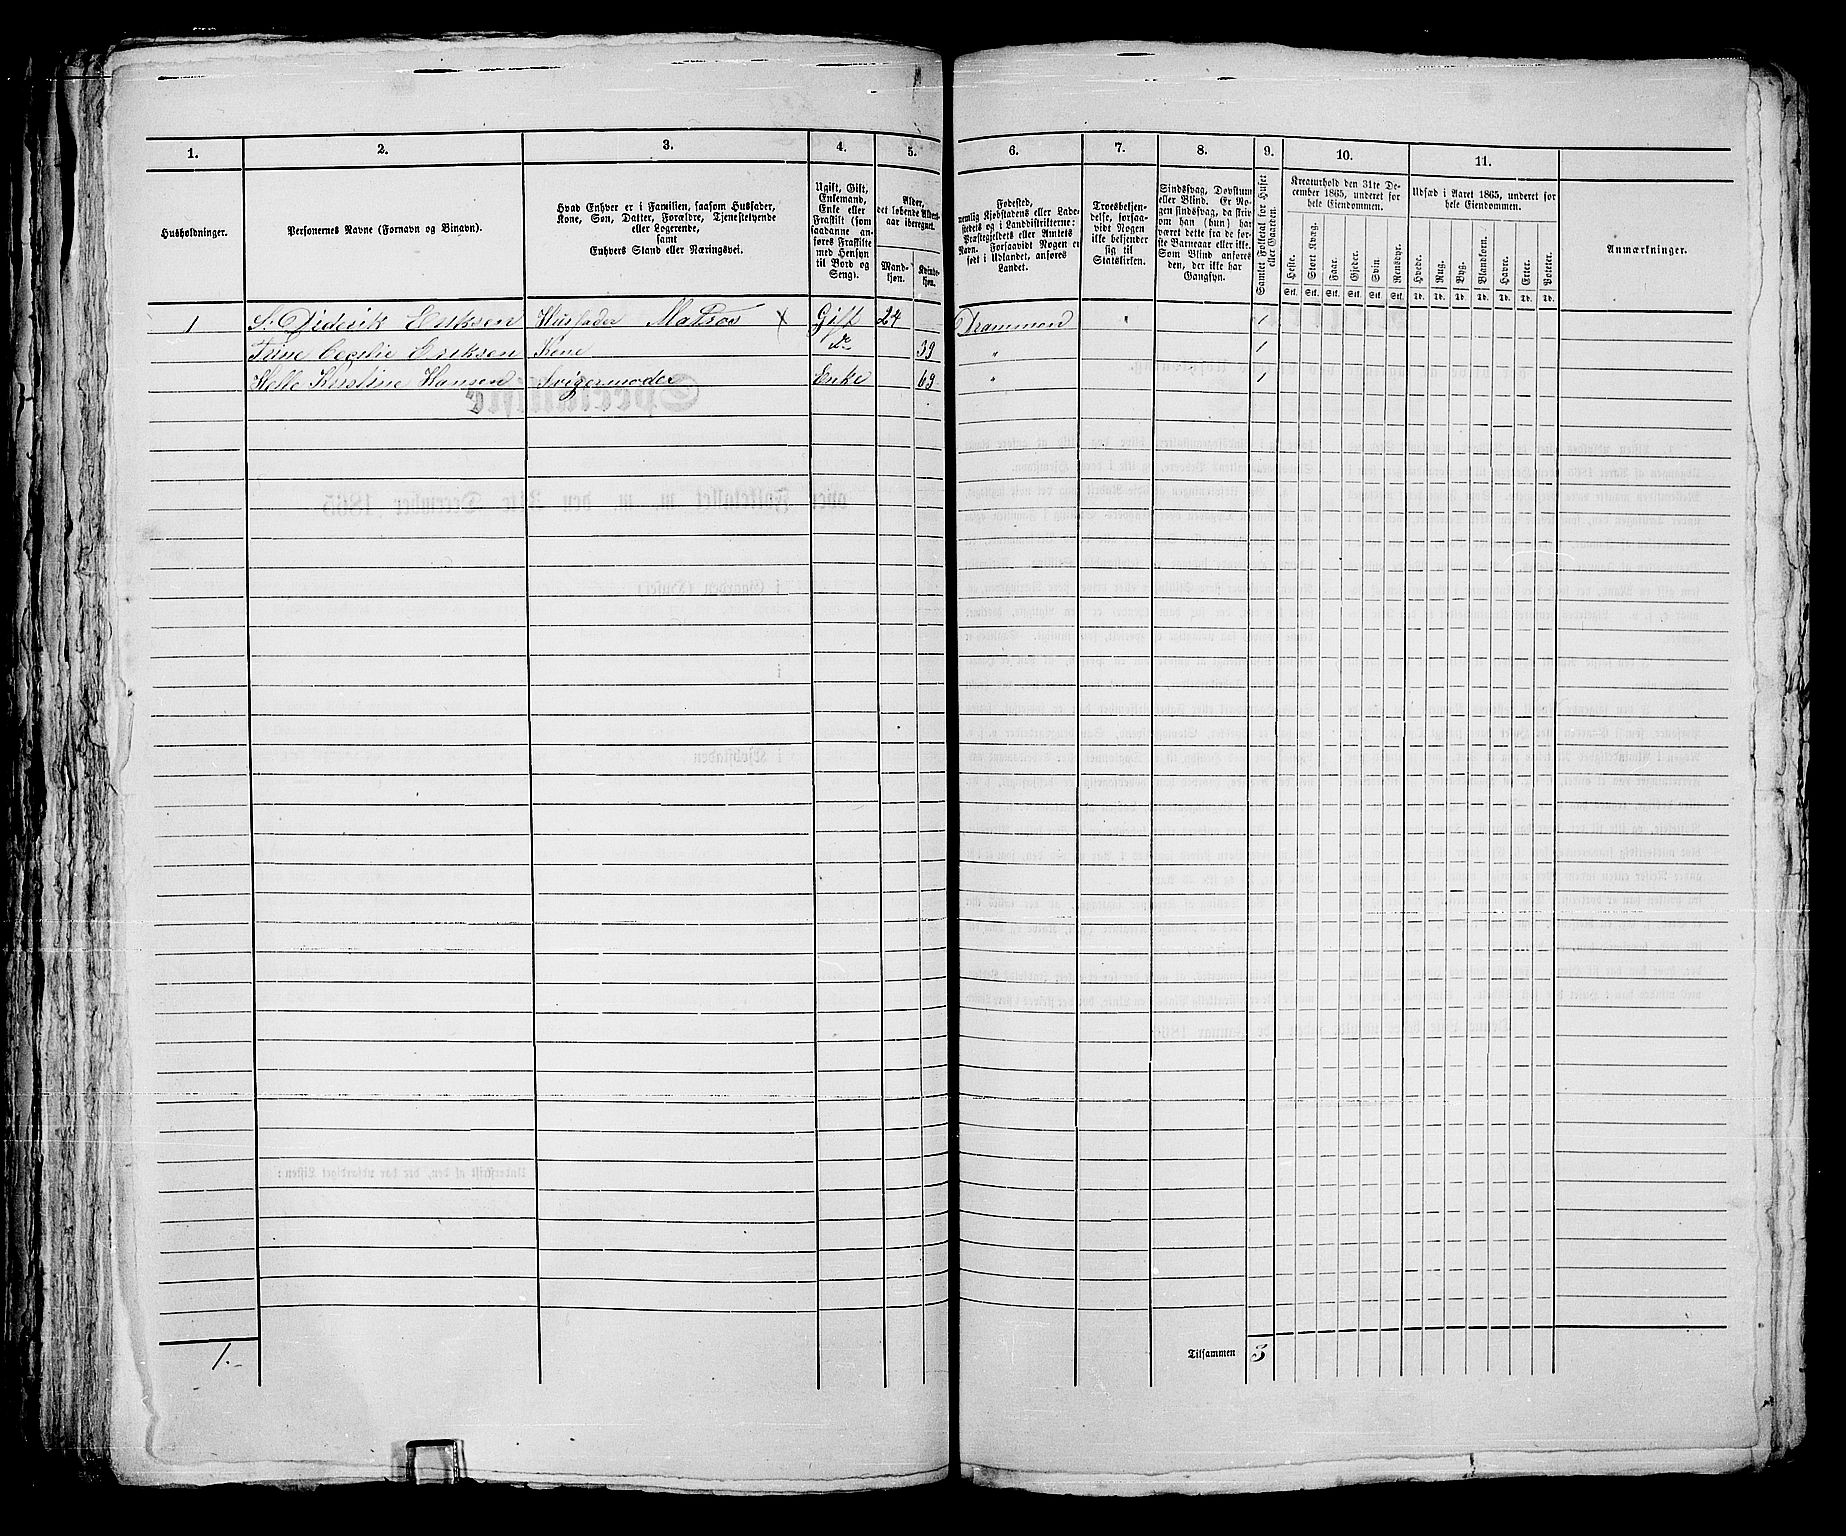 1.
2.
3.
4.
5.
6.
7.
8.
9.
10.
11.
Husholdninger.
Personernes Navne (Fornavn og Binavn).
Hvad Enhver er i Familien, saasom Husfader,
Kone, Søn, Datter, Forældre, Tjenestetyende
eller Logerende,
samt
Enhvers Stand eller Næringsvei.
Ugift, Gift,
Enkemand,
Enke eller
Fraskilt (som
saadanne an-
føres Fraskilte
med Hensyn
til Bord og
Seng).
Alder,
det løbende Alders-
aar iberegnet.
Mand-
kjøn.
Kvinde-
kjøn.
Fødested,
nemlig Kjøbstadens eller Lade-
stedets og i Landdistrikterne:
Præstegjeldets eller Amtets
Navn. Forsaavidt Nogen er
født i Udlandet, anføres
Landet.
Troesbekjen-
delse, forsaa-
vidt Nogen
ikke bekjender
sig til
Statskirken.
Sindssvag, Døvstum
eller Blind. Er No-
gen sindssvag, da skri-
ves om han (hun) har
været dette fra de før-
ste Barneaar eller ikke.
Som Blind anføres
den, der ikke har
Gangsyn.
Samlet Folketal for Huset
eller Gaarden.
Kreaturhold den 31te De-
cember 1865, underet for
hele Eiendommen.
Heste.
Stort Kvæg.
Faar.
Gjeder.
Svin.
Rensdyr.
Stk. Stk. Stk. Stk. Stk. Stk.
Udsæd i Aaret 1865, underet for
hele Eiendommen.
Hvede.
Rug.
Byg.
Blandkorn.
Havre.
Erter.
Poteter.
Td. Td. Td. Td. Td. Td. Td.
Anmærkninger.
1 S. Diderik Eriksen Husfader Matros x Gift 24 Drammen " 1
Cecilie Eriksen Kone do 39 " 1
Kirstine Hansen Svigermoder Enke 69 " 1
1.-
Tilsammen 3